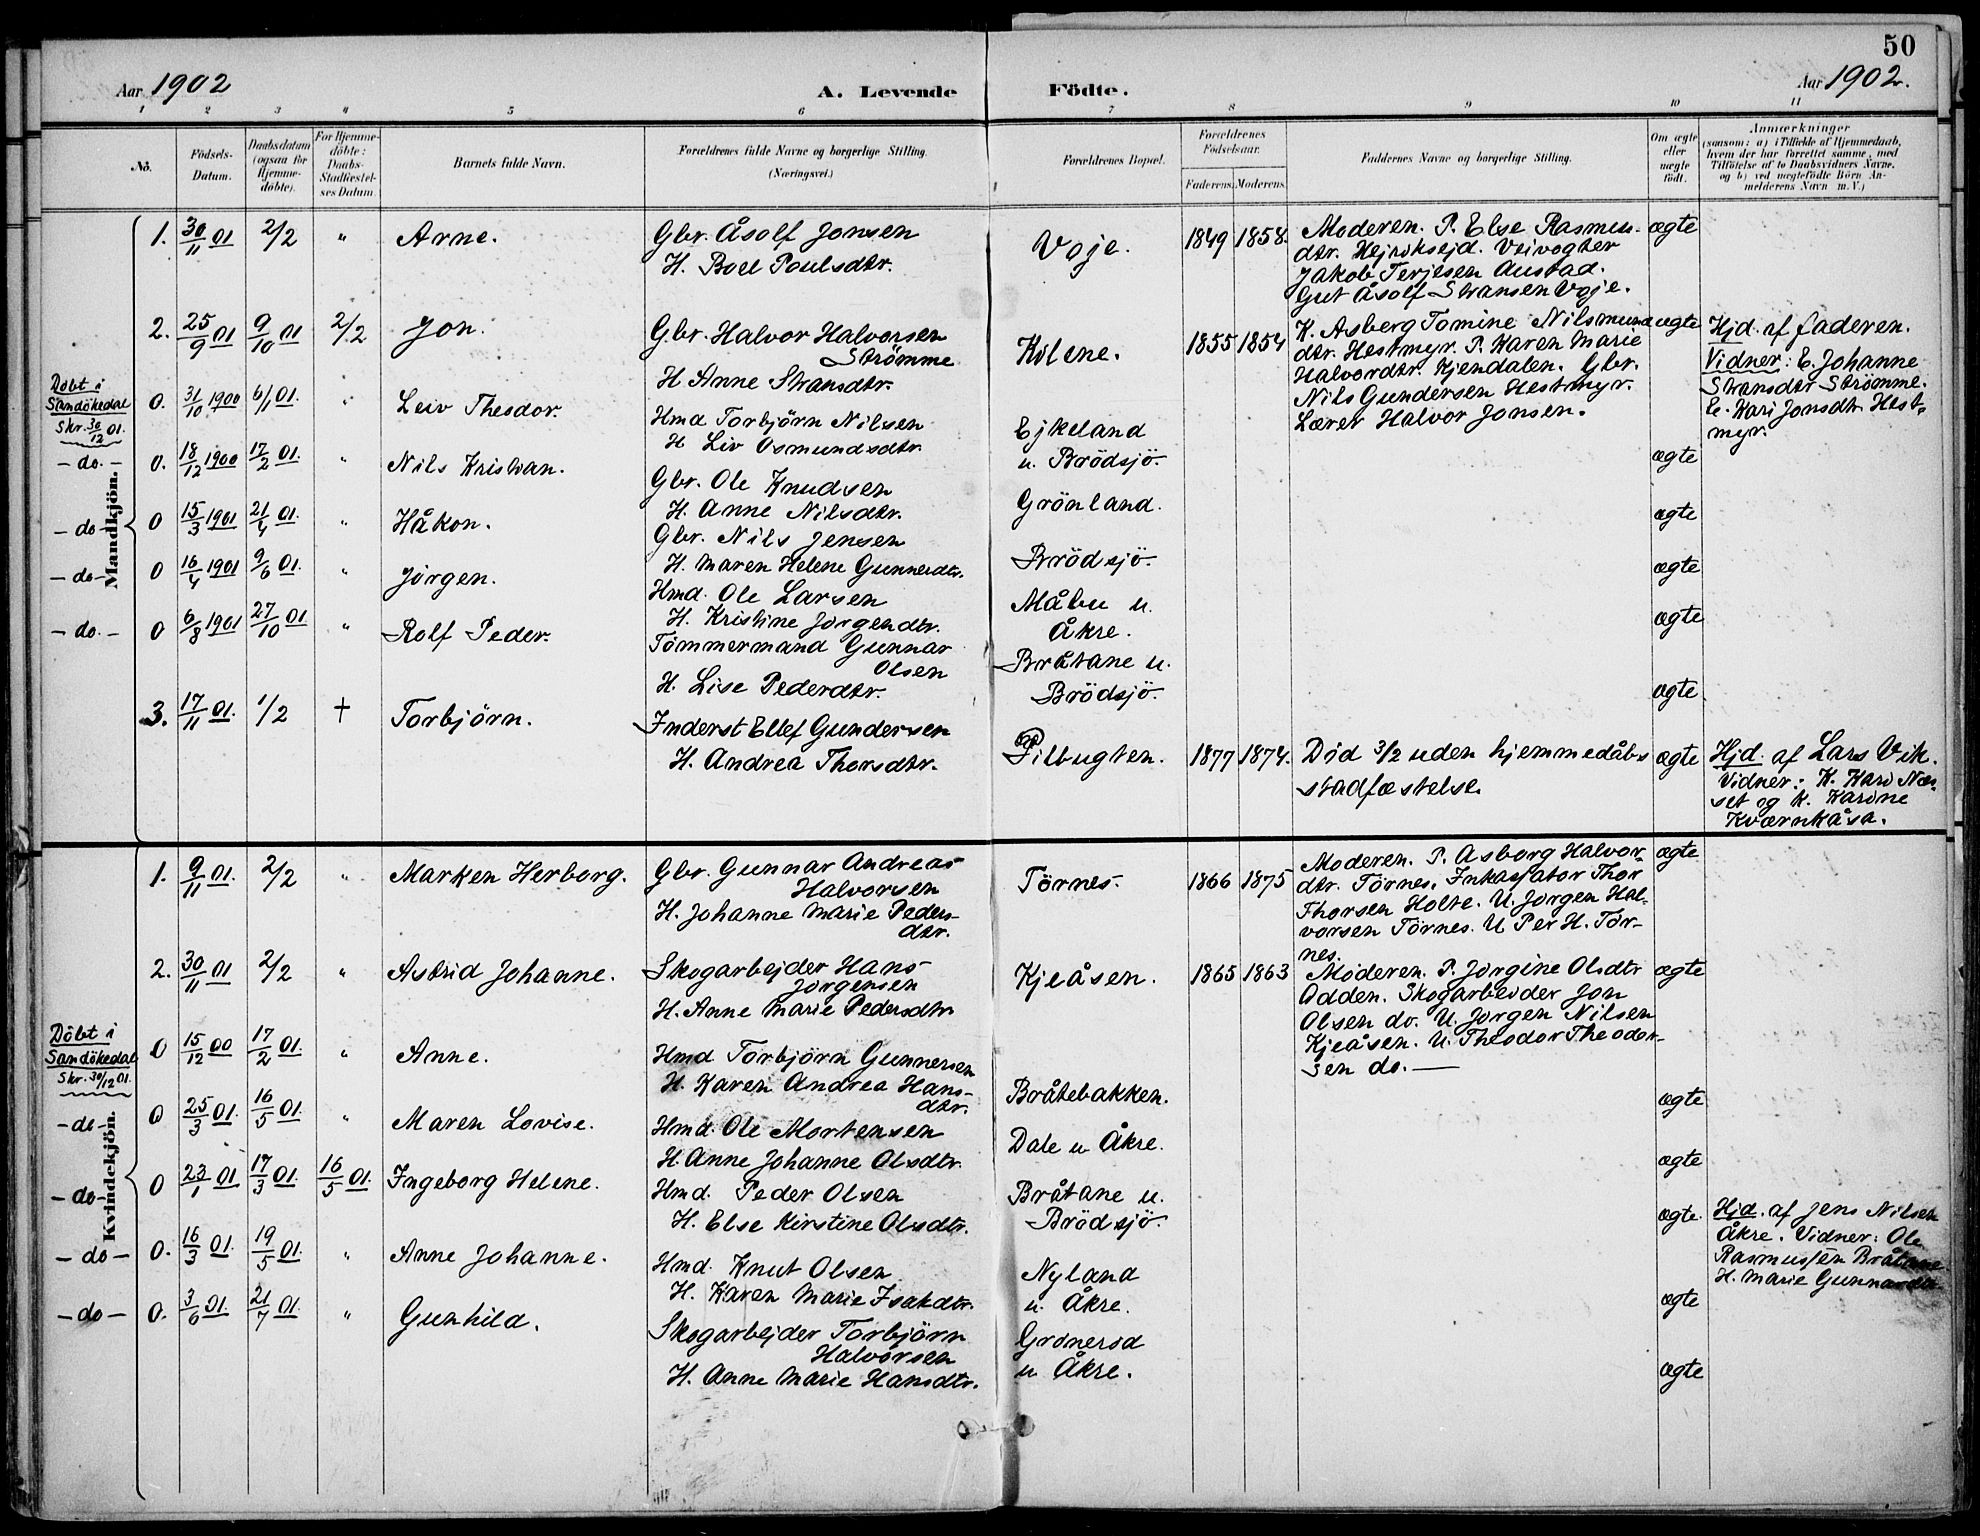 50
Aar 1902
A. Levende Födte.
Aar 1902.
1 2 3 4 5 6 7 8 9 10 11
No.
Födsels-Datum.
Daabsdatum (ogsaa for Hjemme-döbte).
For Hjemme-döbte: Daabs-Stadfæstel-ses Datum.
Barnets fulde Navn.
Forældrenes fulde Navne og borgerlige Stilling.
(Næringsvei.)
Forældrenes Bopæl.
Forældrenes Födselsaar.
Faderens. Moderens.
Faddernes Navne og borgerlige Stilling.
Om ægte eller uægte födt.
Anmærkninger
(saasom: a) i Tilfælde af Hjemmedaab, hvem der har forrettet samme, med Tilföielse af to Daabsvidners Navne, og b) ved uægtefödte Börn An-melderens Navn m. V.)
Mandkjön.
1. 30/11 01 2/2 " Arne.
Gbr. Åsolf Jonsen
H. Boel Poulsdtr.
Voje. 1849 1858.
Moderen. P. Else Rasmus-
dtr. Hejriksejd. Veivogter
Jakob Terjesen Austad.
Gut Åsolf Stiansen Voje.
ægte
2. 25/9 01 9/10 01 2/2 Jon.
Gbr. Halvor Halvorsen
Strömme
H Anne Stiansdtr.
Kilene. 1855 1854
K. Asberg Tomine Nilsmund
dtr. Hestmyr. P. Karen Marie
Halvordtr. Kjendalen. Gbr.
Nils Gundersen Hestmyr.
Lærer Halvor Jonsen.
ægte
Hjd. af faderen.
Vidner: E. Johanne
Stiansdtr Strömme.
E. Kari Jonsdtr. Hest-
myr.
Döbt i
Sandökedal
Skr. 30/12 01.
0. 31/10 1900 6/1 01. " Leiv Theodor.
Hmd Torbjörn Nilsen
H Liv Osmundsdtr.
Ejkeland
u. Brödsjö.
ægte
- do. -
0. 18/12 1900 17/2 01. " Nils Kristian.
Gbr. Ole Knudsen
H. Anne Nilsdtr.
Grönland.
ægte
- do -
0 15/3 1901 21/4 01. " Håkon.
Gbr. Nils Jensen
H. Maren Helene Gunnersdtr.
Brödsjö.
ægte
- do -
0 16/4 1901 9/6 01. " Jörgen.
Hmd. Ole Larsen
H. Kristine Jörgendtr.
Måbu u.
Åkre.
ægte
- do. -
0 6/8 1901 27/10 01 " Rolf Peder.
Tömmermand Gunnar
Olsen
H. Lise Pederdtr.
Bråtane u.
Brödsjö.
ægte.
3. 17/11 01. 1/2 † Torbjörn.
Inderst Ellef Gundersen
H. Andrea Thorsdtr.
Pilbugten. 1877 1874.
Död 3/2 uden hjemmedåbs
stadfæstelse.
ægte
Hjd. af Lars Vik.
Vidner: K. Kari Næs-
set og K. Karine
Kværnkåsa.
Kvindekjön.
1. 9/11 01. 2/2 " Marken Herborg.
Gbr. Gunnar Andreas
Halvorsen
H. Johanne Marie Peders-
dtr.
Törnes. 1866 1875
Moderen. P. Asborg Halvor-
dtr. Törnes. Inkassator Thor
Thorsen Holte. U. Jörgen Hal-
vorsen Törnes. U Per H. Tör-
nes.
ægte
2. 30/11 01 2/2 " Astrid Johanne.
Skogarbejder Hans
Jörgensen
H. Anne Marie Pedersdtr
Kjeåsen. 1865 1863
Moderen. P. Jörgine Olsdtr
Odden. Skogarbeider Jon
Olsen do. U. Jörgen Nilsen
Kjeåsen. U. Theodor Theodor-
sen do.
ægte
Döbt i
Sandökedal
Skr. 30/12 01.
0 15/12 00 17/2 01. " Anne.
Hmd Torbjörn Gunnersen
H. Karen Andrea Hans-
dtr.
Bråtebakken.
ægte
- do -
0 25/3 01. 16/5 01. " Maren Lovise.
Hmd. Ole Mortensen
H. Anne Johanne Olsdtr.
Dale u Åkre.
ægte
- do -
0 23/1 01 17/3 01. 16/5 01. Ingeborg Helene.
Hmd. Peder Olsen
H. Else Kirstine Olsdtr.
Bråtane u.
Brödsjö.
ægte.
Hjd. af Jens Nilsen
Åkre. Vidner: Ole
Rasmussen Bråtane
H. Marie Gunnarsdtr.
- do -
0. 16/3 01. 19/5 01. " Anne Johanne.
Hmd. Knut Olsen
H. Karen Marie Isakdtr.
Nyland
u. Åkre.
ægte
- do -
0. 3/6 01. 21/7 01. " Gunhild.
Skogarbejder Torbjörn
Halvorsen
H. Anne Marie Hansdtr.
Grönerød
u Åkre.
ægte